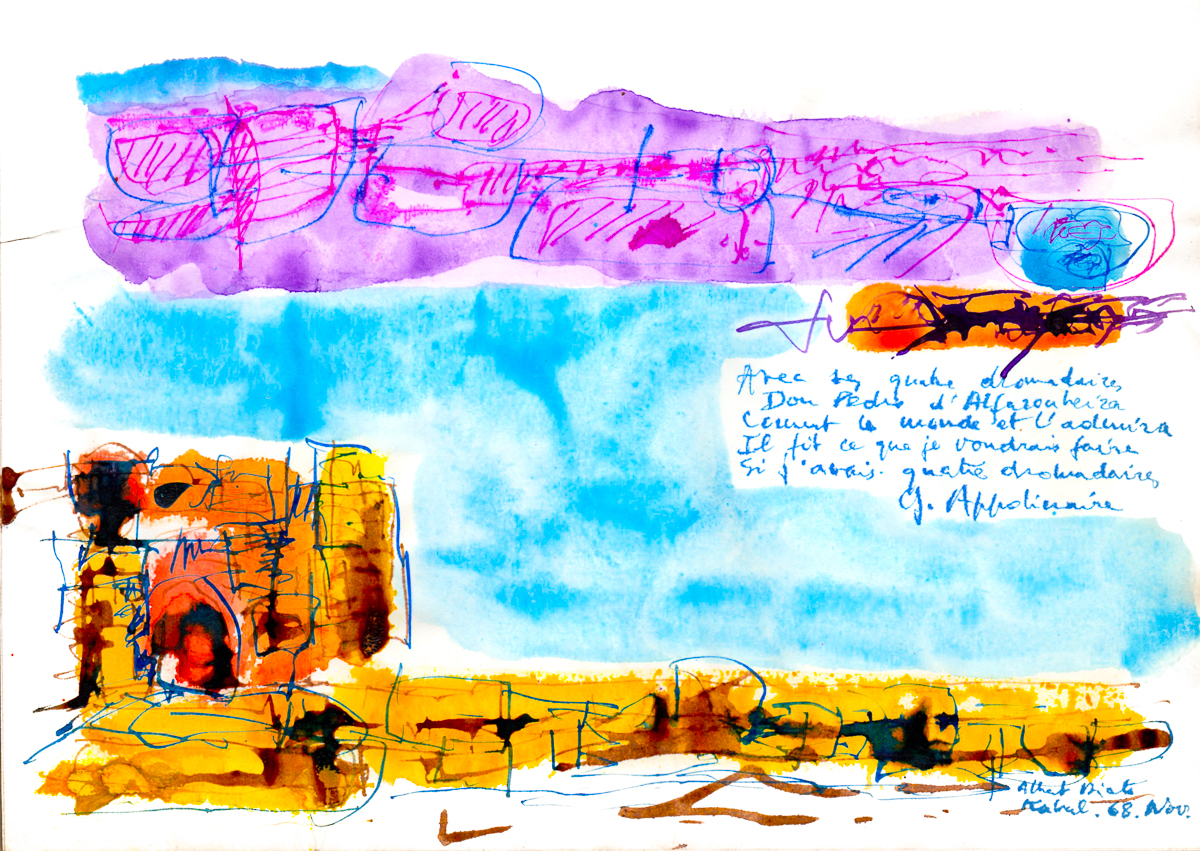 Avec ses quatre dromadaires
Don Pedro d'Alfaroubeira
Courut le monde et l'admira
Il fit ce que je voudrais faire
Si j'avais quatre dromadaires
G. Appolinaire
Kabul. 68. Nov.